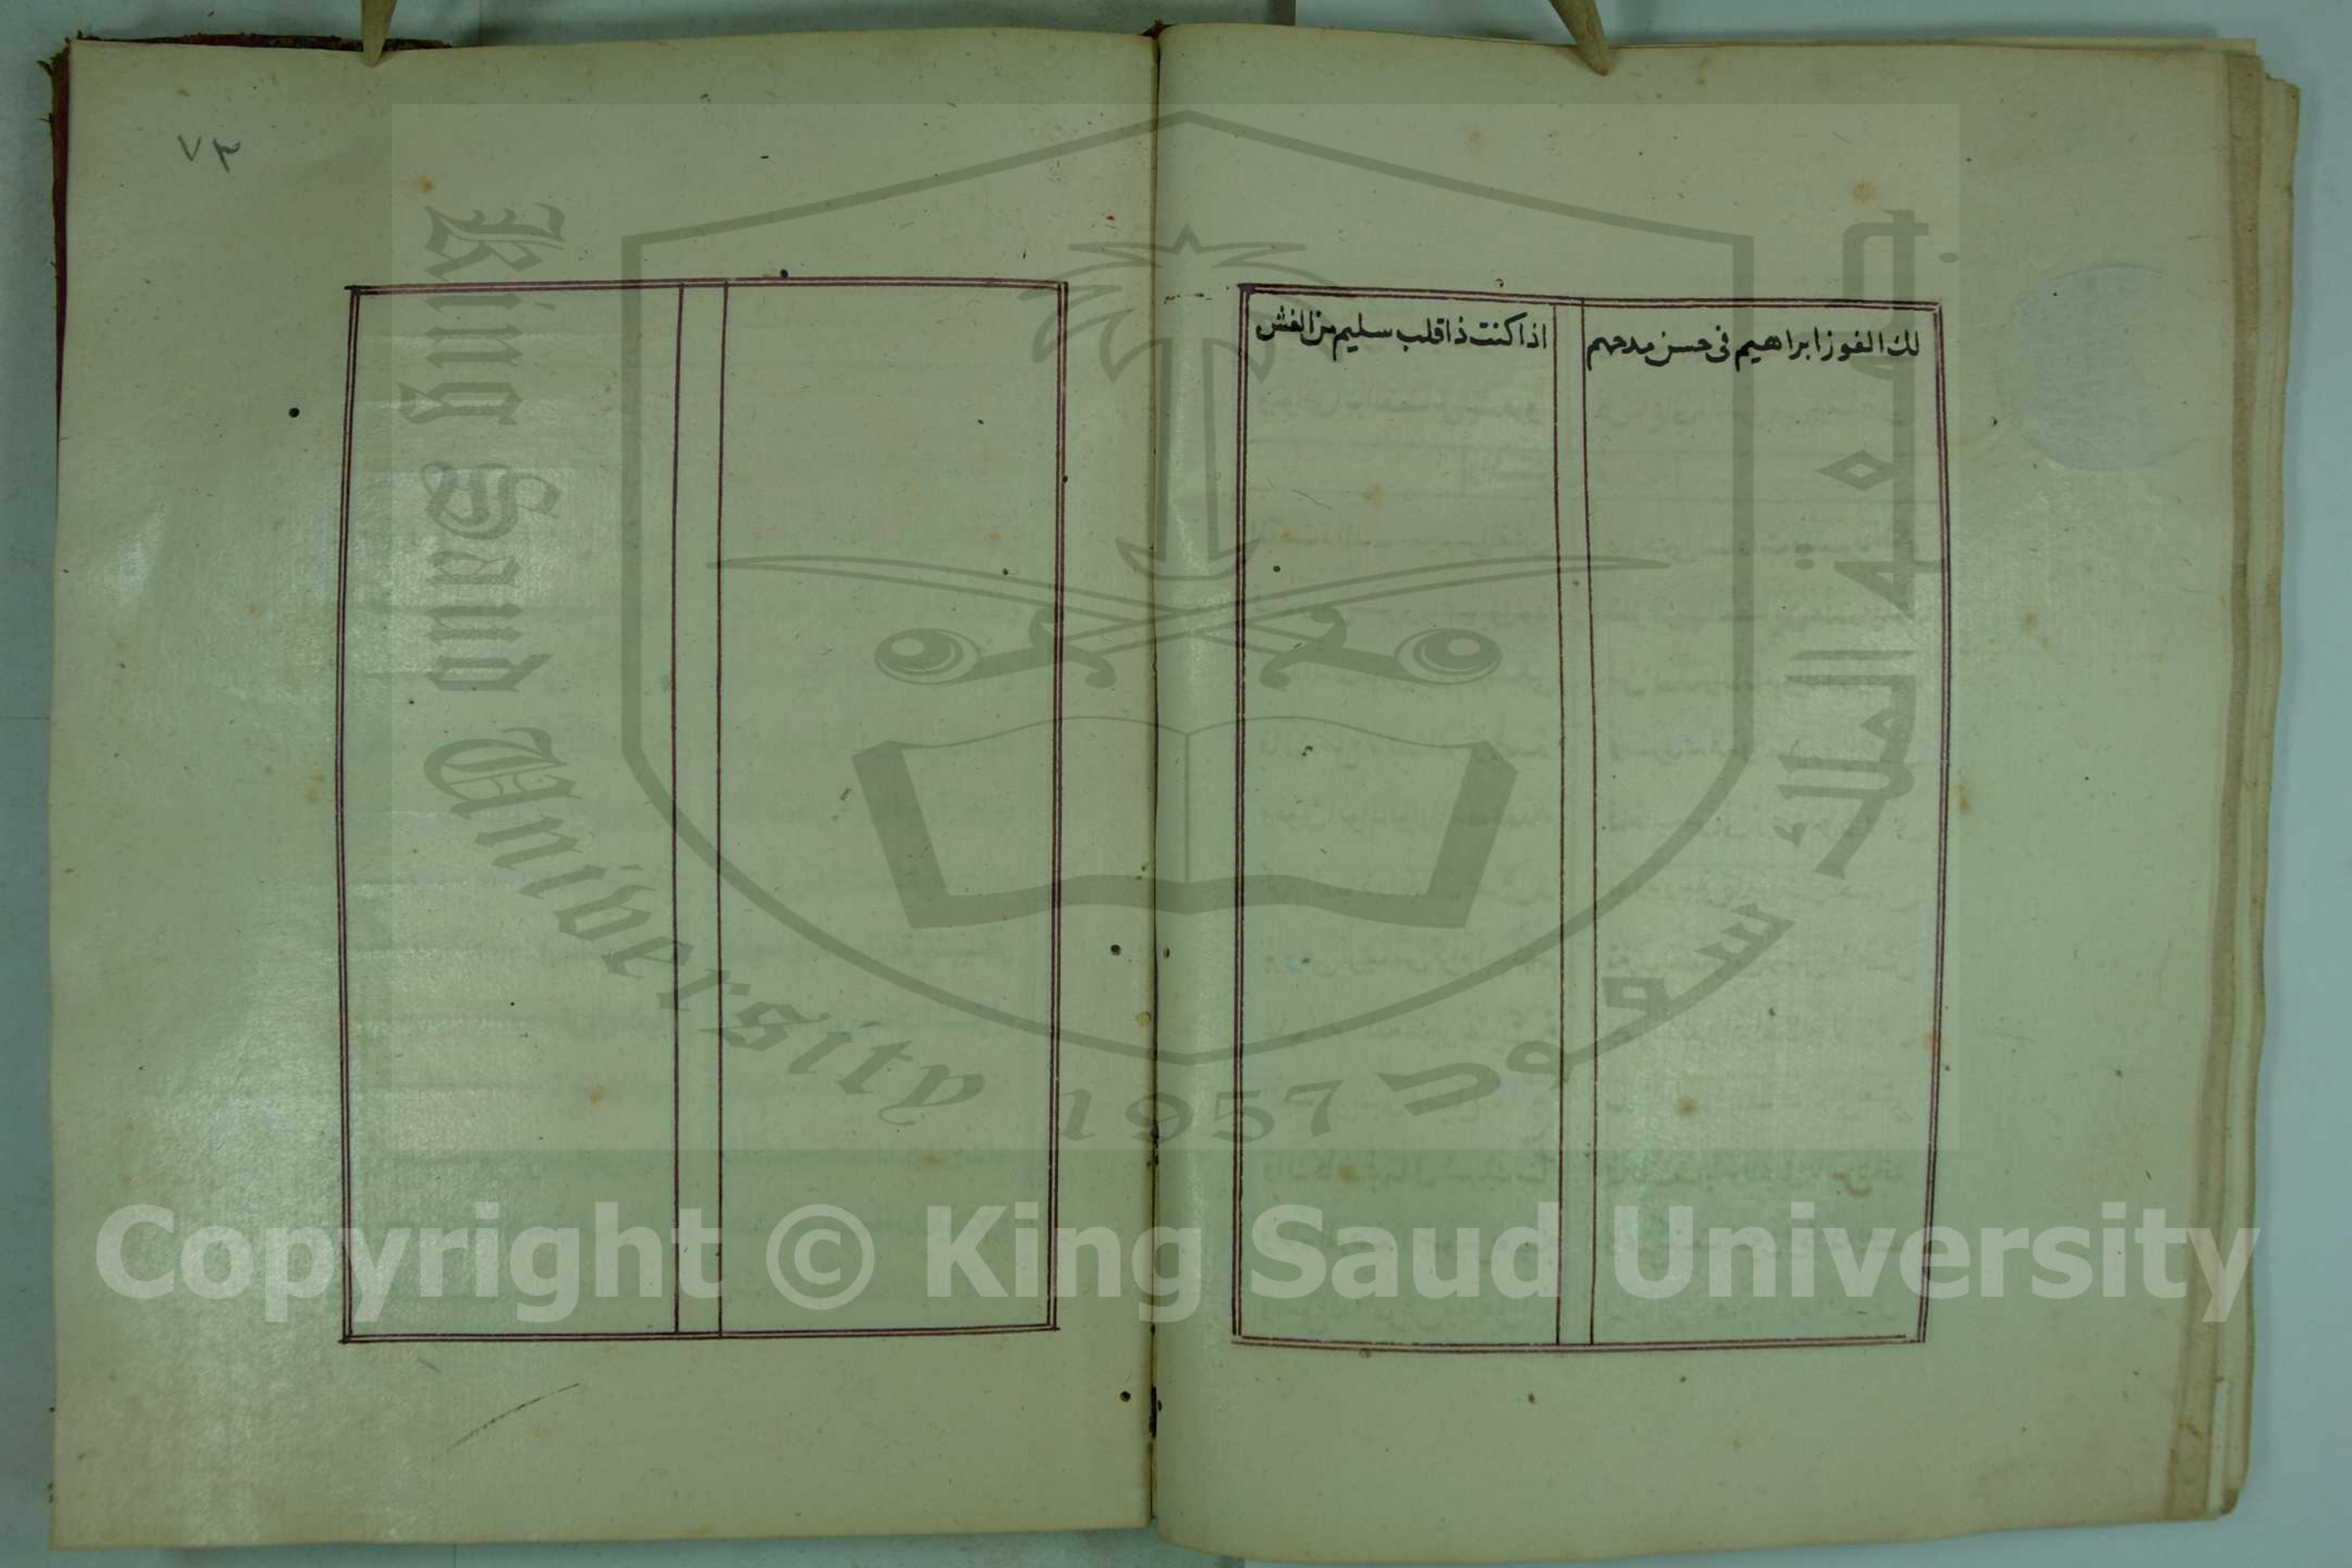 لك الفوز ابراهيم فى حسن مدحهم اذا كنت ذا قلب سليم من الغش
٧٣
King Saud University 1957 جامعة الملك سعود
Copyright © King Saud University